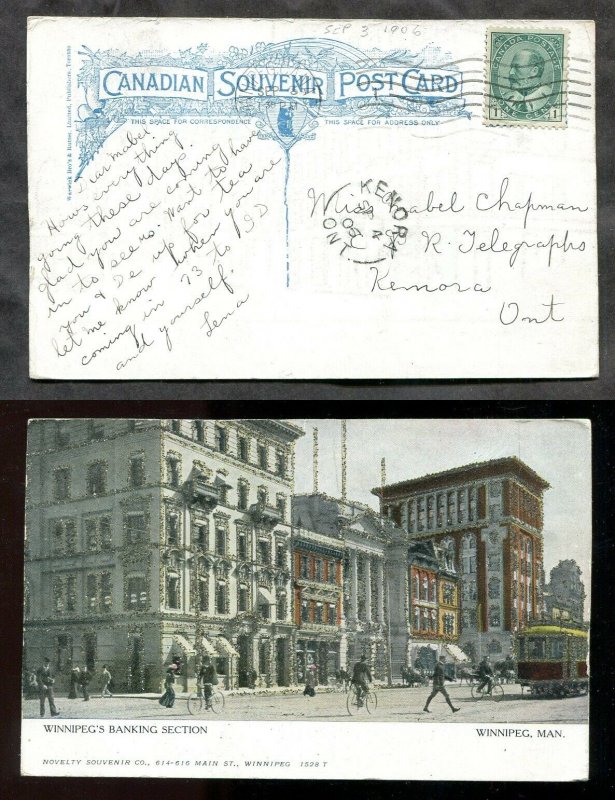 SEP 3 1906
CANADIAN SOUVENIR POST CARD
THIS SPACE FOR CORRESPONDENCE
THIS SPACE FOR ADDRESS ONLY
CANADA POSTAGE
1 ONE CENT 1
Warwick Bro's & Rutter, Limited, Publishers, Toronto
Dear Mabel
Hows everything
going these days.
Glad you are coming
in to see us. Want to have
you & De up for tea
let me know when you are
coming in 73 to
and yourself.
Lena
KENORA
ONT
Miss Mabel Chapman
R. Telegraphs
Kenora
Ont
WINNIPEG'S BANKING SECTION
WINNIPEG, MAN.
NOVELTY SOUVENIR CO., 614-616 MAIN ST., WINNIPEG 1528 T